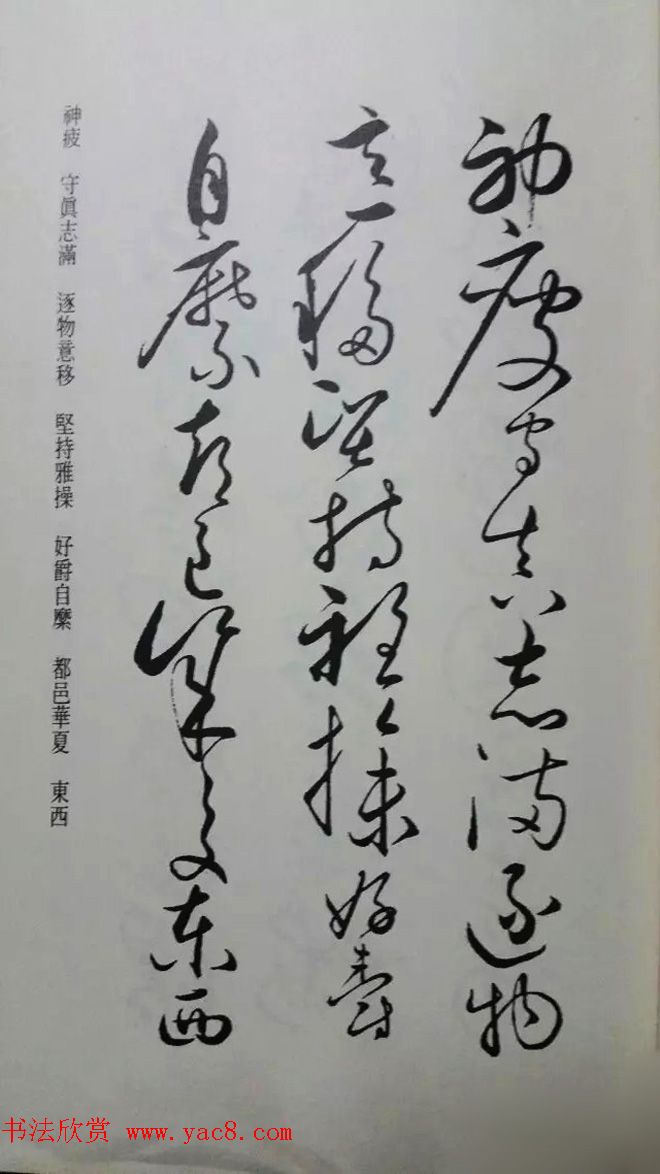 神疲守真志滿逐物
意移堅持雅操好爵
自縻都邑華夏東西
神疲 守眞志滿 逐物意移 堅持雅操 好爵自縻 都邑華夏 東西
书法欣赏 www.yac8.com